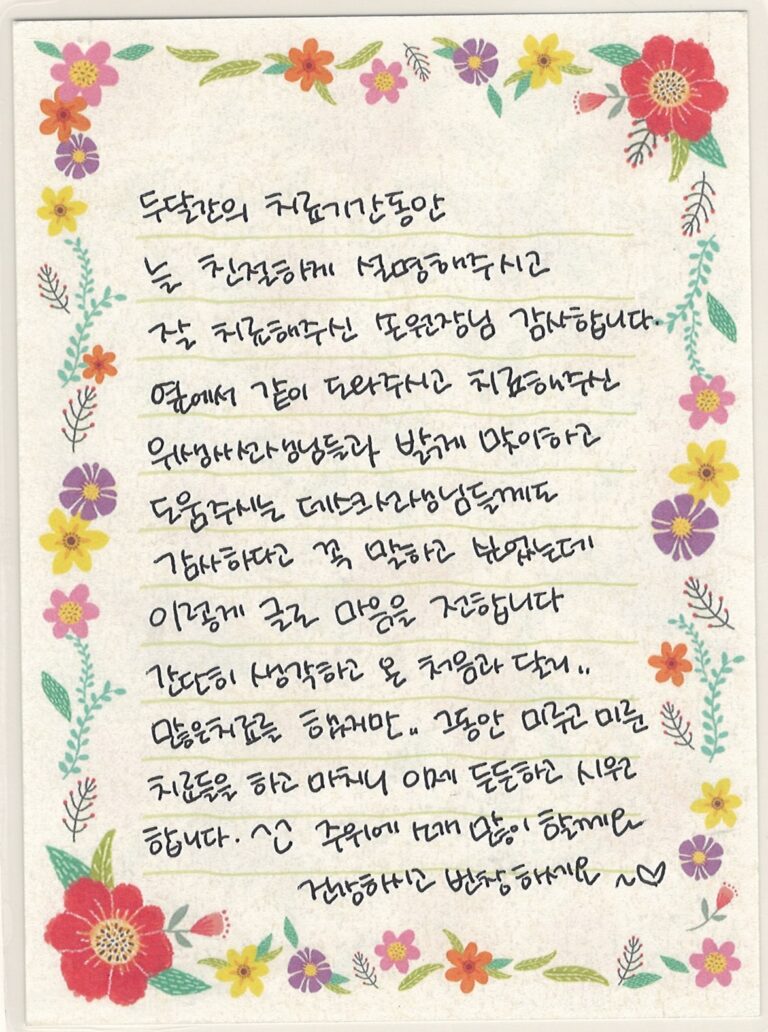 두달간의 치료기간동안
늘 친절하게 설명해주시고
잘 치료해주신 손원장님 감사합니다.
옆에서 같이 도와주시고 치료해주신
위생사선생님들과 밝게 맞이하고
도움주시는 데스크선생님들께도
감사하다고 꼭 말하고 싶었는데
이렇게 글로 마음을 전합니다
간단히 생각하고 온 처음과 달리..
많은치료를 했지만.. 그동안 미루고 미룬
치료들을 하고 마치니 이제 든든하고 시원
합니다. ^^ 주위에 소개 많이 할께요
건강하시고 번창하세요 ~♡